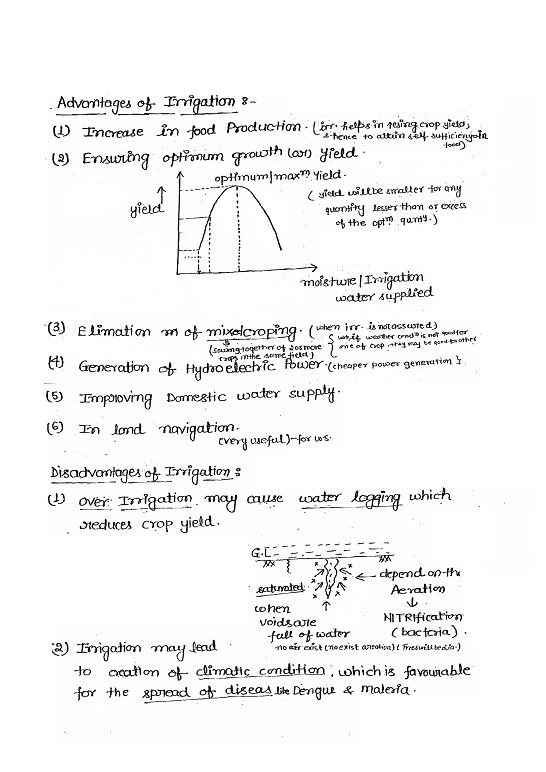 Advantages of Irrigation :-
(1) Increase in food Production. (irr. helps in rising crop yield,
& hence to attain self sufficiency in
food)
(2) Ensuring optimum growth (or) Yield.
optimum/maxᵐ Yield.
yield
( yield will be smaller for any
quantity lesser than or excess
of the optᵐ qunty.)
moisture/Irrigation
water supplied
(3) Elimation m of mixedcroping. (when irr. is not assured)
(sowing together of 2 or more
crops in the same field)
{ is not good for
one of crop, may be good to other
(4) Generation of Hydroelectric Power. (cheaper power generation).
(5) Improving Domestic water supply.
(6) In land navigation.
(very useful) - for us.
Disadvantages of Irrigation :
(1) over Irrigation may cause water logging which
reduces crop yield.
G.L
saturated.
when
voids are
full of water
depend on the
Aeration
NITRification
(bacteria).
no air exist (no exist aeration)
2) Irrigation may lead
to creation of climatic condition, which is favourable
for the spread of diseas like Dengue & maleria.